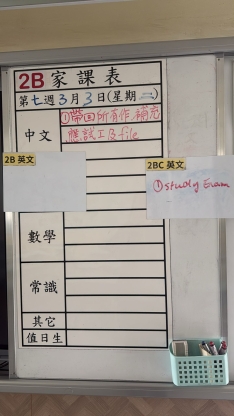 2B 家課表
第七週3月3日(星期二)
中文
①帶回所有作補充
應試工B file
2B 英文
2BC 英文
①study Exam
數學
常識
其它
值日生